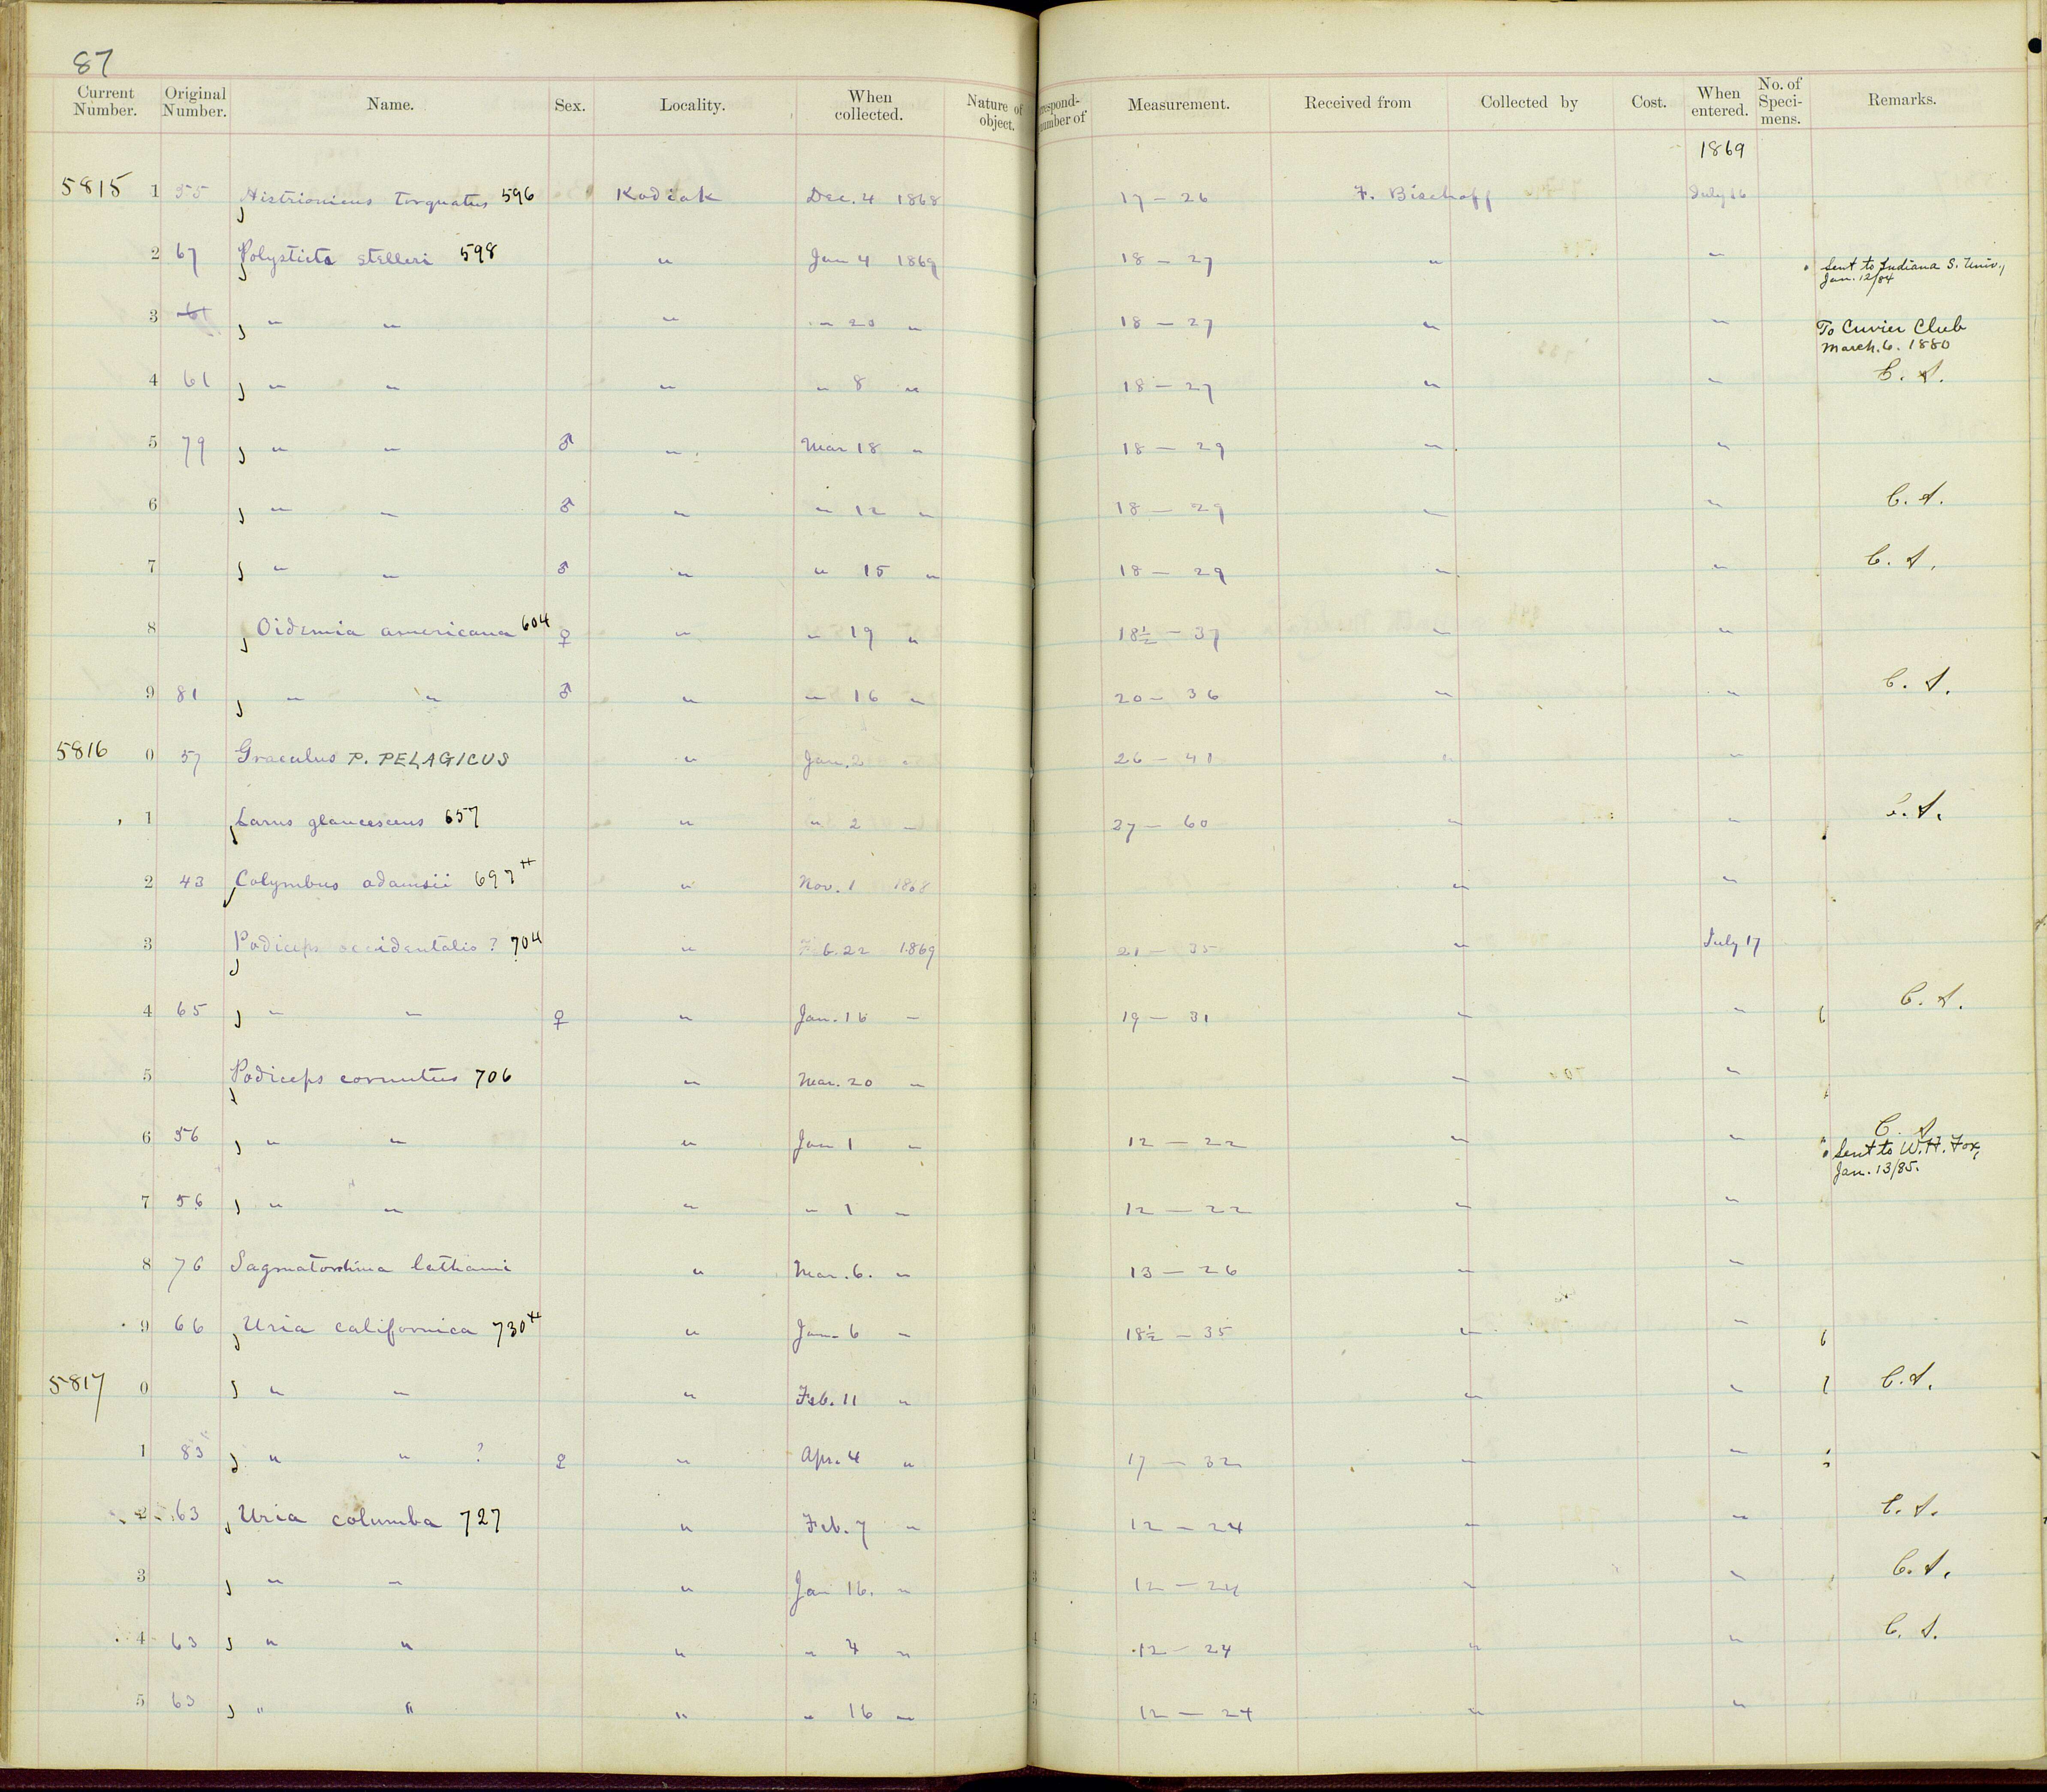 87
Current Number. Original Number. Name. Sex. Locality. When collected. Nature of object. respond- number of Measurement. Received from Collected by Cost. When entered. No. of Speci- mens. Remarks.
1869
5815 1 55 Histrionicus torquatus 596 Kodiak Dec. 4 1868 17 — 26 F. Bischoff July 16
2 67 Polysticta stelleri 598 " Jan 4 1869 18 — 27 " " Sent to Indiana S. Univ., Jan. 12/84
3 61 " " " " 20 " 18 — 27 " " To Cuvier Club March. 6. 1880
4 61 " " " " 8 " 18 — 27 " " C. S.
5 79 " " ♂ " Mar 18 " 18 — 29 " "
6 " " ♂ " " 12 " 18 — 29 " " C. S.
7 " " ♂ " " 15 " 18 — 29 " " C. S.
8 Oidemia americana 604 ♀ " " 19 " 18½ — 37 " "
9 81 " " ♂ " " 16 " 20 — 36 " " C. S.
5816 0 57 Graculus P. PELAGICUS " Jan. 2 " 26 — 41 " "
1 Larus glaucescens 657 " " 2 " 27 — 60 " " C. S.
2 43 Colymbus adamsii 697 " Nov. 1 1868 " "
3 Podiceps occidentalis ? 704 " Feb. 22 1869 21 — 35 " July 17
4 65 " " ♀ " Jan. 16 " 19 — 31 " " C. S.
5 Podiceps cornutus 706 " Mar. 20 " " "
6 56 " " " Jan 1 " 12 — 22 " " C. S. Sent to W. H. Fox, Jan. 13/85.
7 56 " " " " 1 " 12 — 22 " "
8 76 Sagmatorrhina lathami " Mar. 6. " 13 — 26 " "
9 66 Uria californica 730 " Jan. 6 " 18½ — 35 " "
5817 0 " " " Feb. 11 " " " C. S.
1 83 " " ? ♀ " Apr. 4 " 17 — 32 " "
2 63 Uria columba 727 " Feb. 7 " 12 — 24 " " C. S.
3 " " " Jan 16. " 12 — 24 " " C. S.
4 63 " " " " 4 " 12 — 24 " " C. S.
5 63 " " " " 16 " 12 — 24 " "